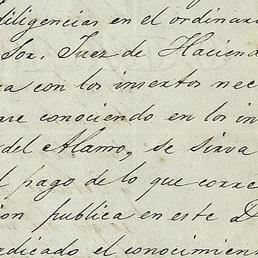 diligencias en el ordinar
Sor. Juez de Haciend
a con los insertos nec
are conociendo en los in
del Alamo, se sirva
l pago de lo que corre
ion publica en este D
adicado el conocimien